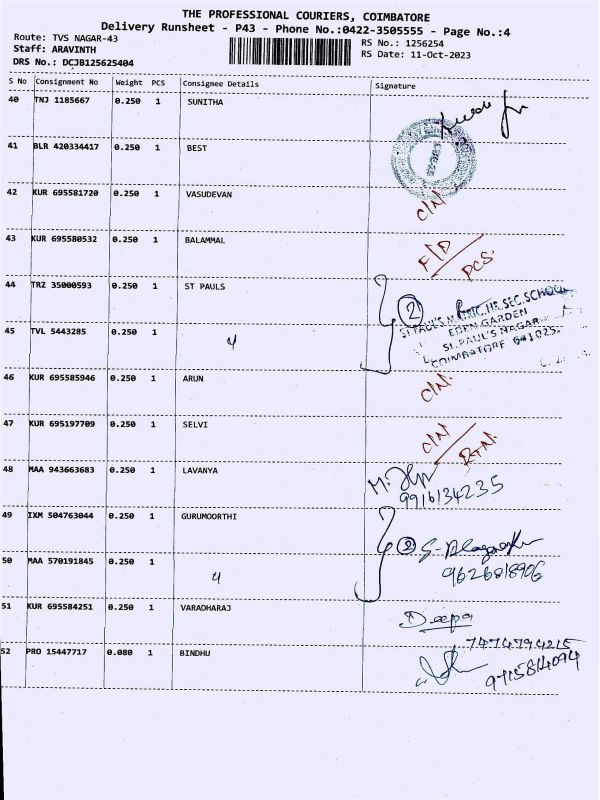 THE PROFESSIONAL COURIERS, COIMBATORE
Delivery Runsheet - P43 - Phone No.:0422-3505555 - Page No.:4
Route: TVS NAGAR-43 RS No.: 1256254
Staff: ARAVINTH RS Date: 11-Oct-2023
DRS No.: DCJB125625404
S No Consignment No Weight PCS Consignee Details Signature
40 TNJ 1185667 0.250 1 SUNITHA
41 BLR 420334417 0.250 1 BEST
42 KUR 695581720 0.250 1 VASUDEVAN C/N
43 KUR 695580532 0.250 1 BALAMMAL F/D PCS
44 TRZ 35000593 0.250 1 ST PAULS 2
ST.PAUL'S MATRIC.HR.SEC.SCHOOL
EDEN GARDEN
ST.PAUL'S NAGAR
COIMBATORE 641025.
45 TVL 5443285 0.250 1 4
46 KUR 695585946 0.250 1 ARUN C/N
47 KUR 695197709 0.250 1 SELVI C/N RTN
48 MAA 943663683 0.250 1 LAVANYA M.
9916134235
49 IXM 504763044 0.250 1 GURUMOORTHI 2
50 MAA 570191845 0.250 1 4 9626818906
51 KUR 695584251 0.250 1 VARADHARAJ Deepa
7474794215
52 PRO 15447717 0.080 1 BINDHU 9715814094